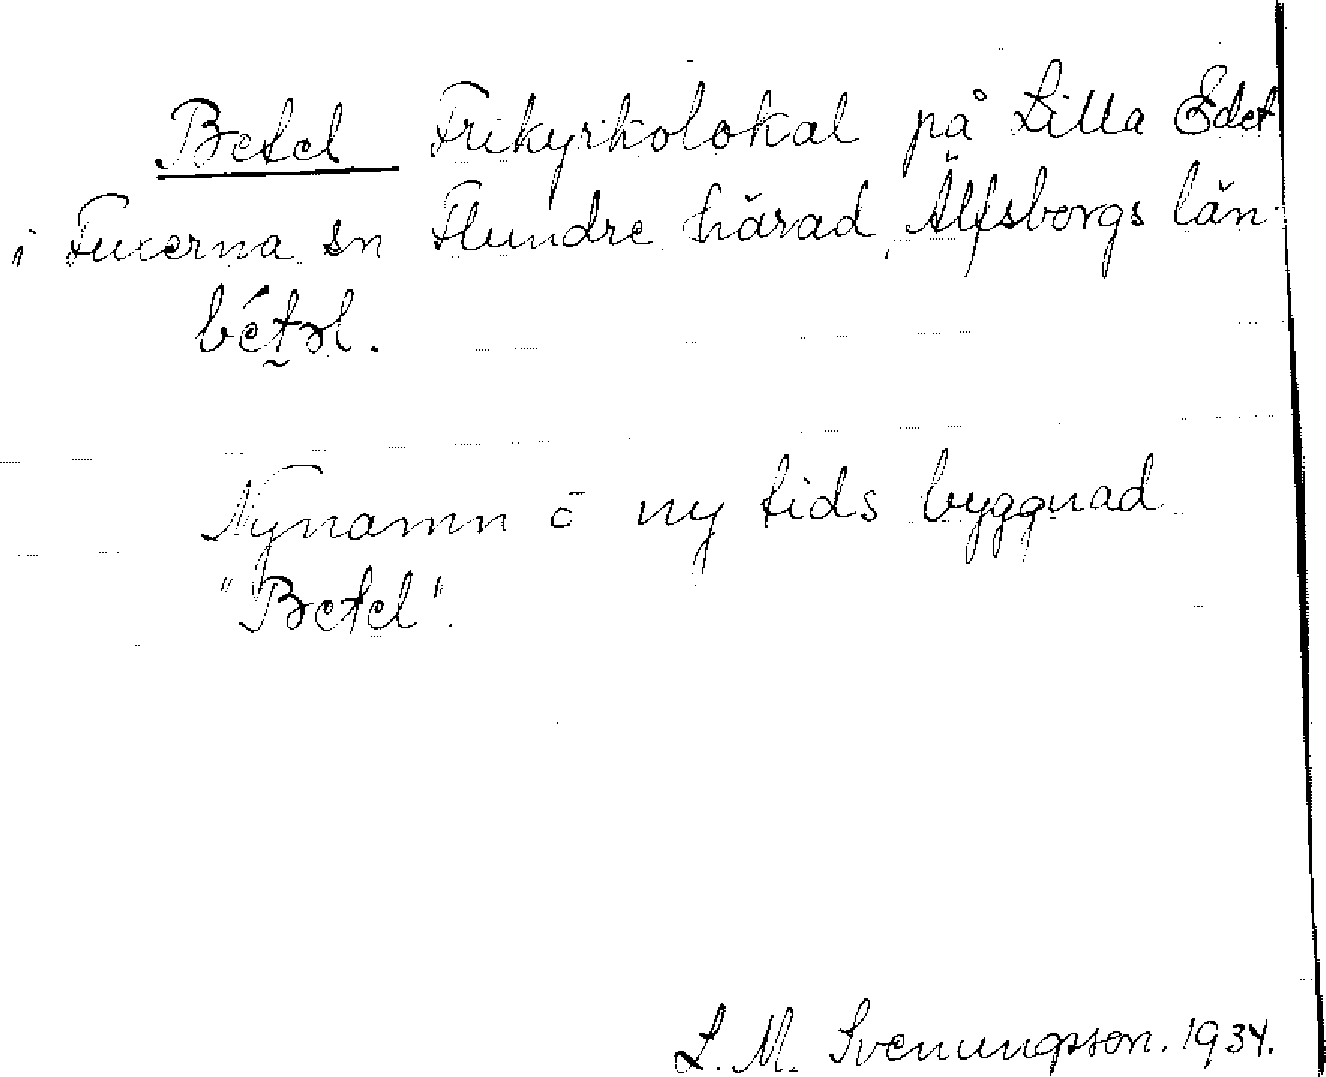 Betel Frikyrkolokal på Lilla Edet
i Fuxerna sn Flundre härad, Älfsborgs län.
bétəl.
Nynamn å ny tids byggnad
"Betel".
L. M. Svenungsson. 1934.